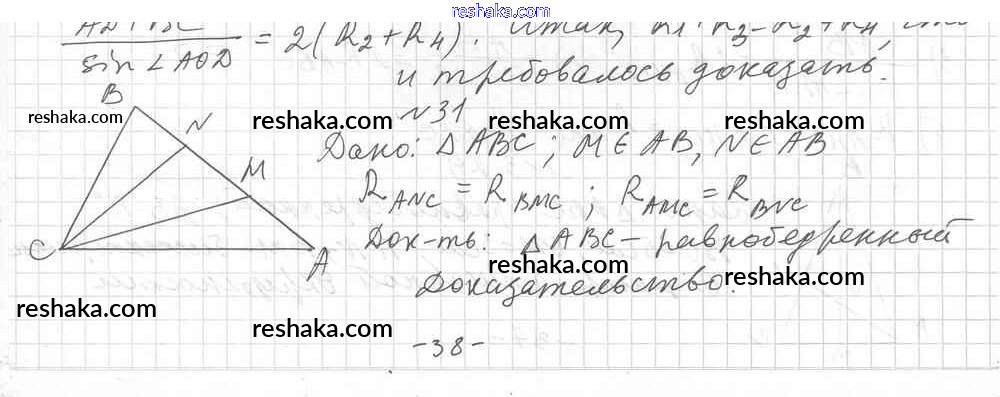 reshaka.com
AD + BC / sin∠AOD = 2(R₂+R₄). Итак, R₁+R₃=R₂+R₄, что
и требовалось доказать.
B
N
M
C
A
№31
reshaka.com reshaka.com reshaka.com
Дано: △ABC; M∈AB, N∈AB
R_ANC = R_BMC; R_AMC = R_BNC
reshaka.com reshaka.com
Док-ть: △ABC – равнобедренный
reshaka.com reshaka.com
Доказательство:
reshaka.com
reshaka.com
-38-
reshaka.com